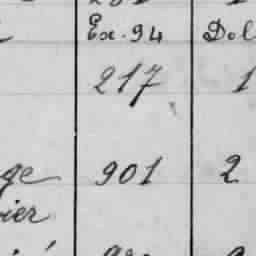 Ex. 94 Dol
217 1
ge 901 2
ier